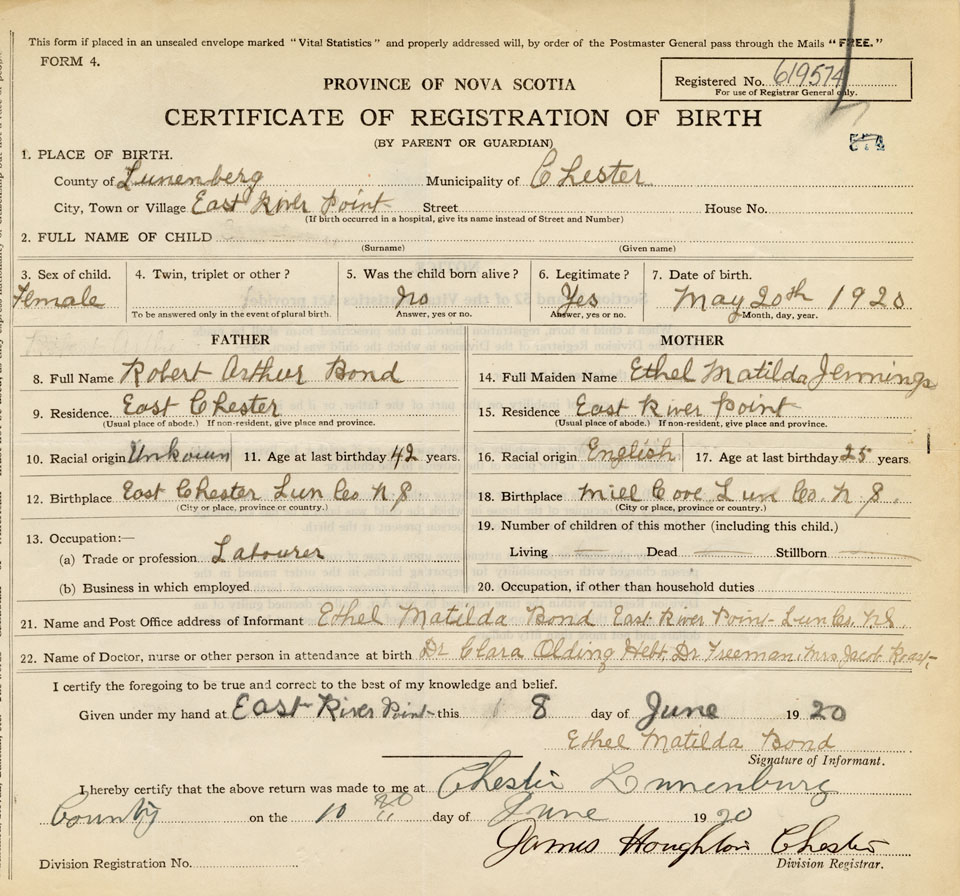 This form if placed in an unsealed envelope marked "Vital Statistics" and properly addressed will, by order of the Postmaster General pass through the Mails "FREE."
FORM 4.
Registered No. 619574
For use of Registrar General only.
PROVINCE OF NOVA SCOTIA
CERTIFICATE OF REGISTRATION OF BIRTH
(BY PARENT OR GUARDIAN)
1. PLACE OF BIRTH.
County of Lunenberg Municipality of Chester
City, Town or Village East River Point Street House No.
(If birth occurred in a hospital, give its name instead of Street and Number)
2. FULL NAME OF CHILD
(Surname) (Given name)
3. Sex of child. 4. Twin, triplet or other? 5. Was the child born alive? 6. Legitimate? 7. Date of birth.
Female no Yes May 20th 1920
To be answered only in the event of plural birth. Answer, yes or no. Answer, yes or no. Month, day, year.
FATHER MOTHER
8. Full Name Robert Arthur Bond 14. Full Maiden Name Ethel Matilda Jennings
9. Residence. East Chester 15. Residence East River Point
(Usual place of abode.) If non-resident, give place and province. (Usual place of abode.) If non-resident, give place and province.
10. Racial origin Unkown 11. Age at last birthday 42 years. 16. Racial origin English 17. Age at last birthday 25 years.
12. Birthplace East Chester Lun Co. N S 18. Birthplace Mill Cove Lun Co. N S.
(City or place, province or country.) (City or place, province or country.)
13. Occupation:— 19. Number of children of this mother (including this child.)
(a) Trade or profession Labourer Living — Dead — Stillborn —
(b) Business in which employed 20. Occupation, if other than household duties
21. Name and Post Office address of Informant Ethel Matilda Bond East River Point Lun Co. N.S.
22. Name of Doctor, nurse or other person in attendance at birth Dr Clara Olding Hebb, Dr Freeman, Mrs Jacob
I certify the foregoing to be true and correct to the best of my knowledge and belief.
Given under my hand at East River Point this 8 day of June 1920
Ethel Matilda Bond
Signature of Informant.
I hereby certify that the above return was made to me at Chester Lunenburg
County on the 10 day of June 1920
James Houghton Chester
Division Registration No. Division Registrar.